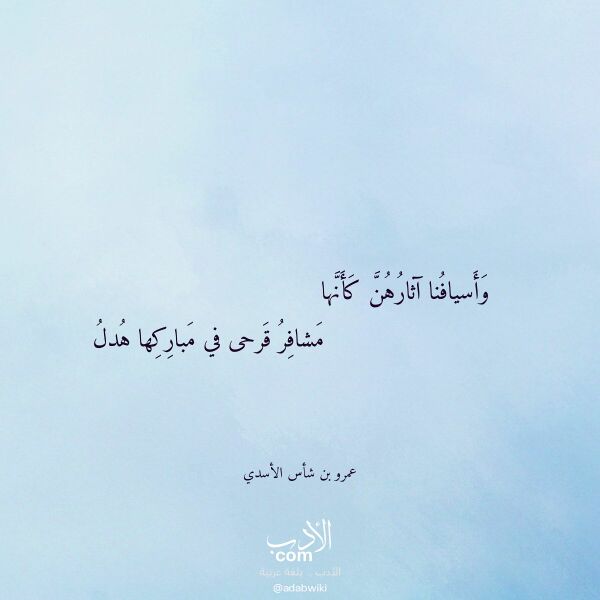 وَأَسيافُنا آثارُهُنَّ كَأَنَّها
مَشافِرُ قَرحى في مَبارِكِها هُدلُ
عمرو بن شأس الأسدي
الأدب
com
الأدب .. بلغة عربية
@adabwiki